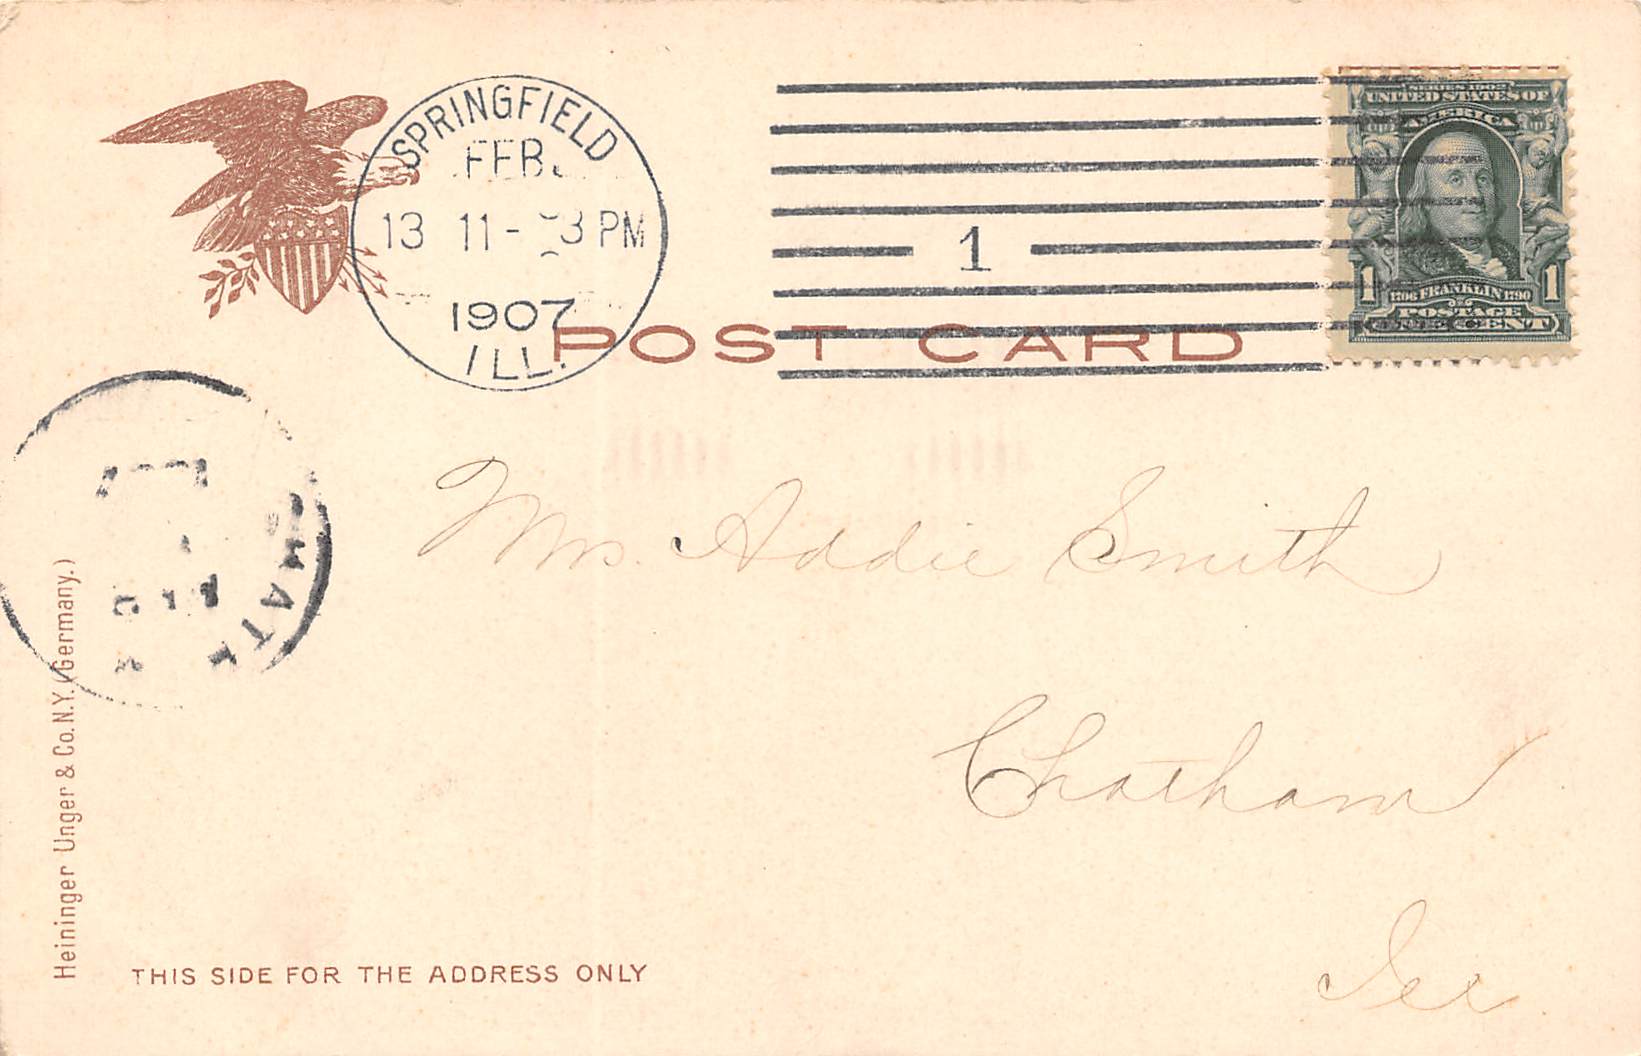 SPRINGFIELD
FEB.
13 11- 3 PM
1907
ILL.
1
SERIES 1902
UNITED STATES OF
AMERICA
1 1
1706 FRANKLIN 1790
POSTAGE
ONE CENT
POST CARD
Mrs. Addie Smith
Chatham
Ill
Heininger Unger & Co. N.Y. (Germany.)
THIS SIDE FOR THE ADDRESS ONLY